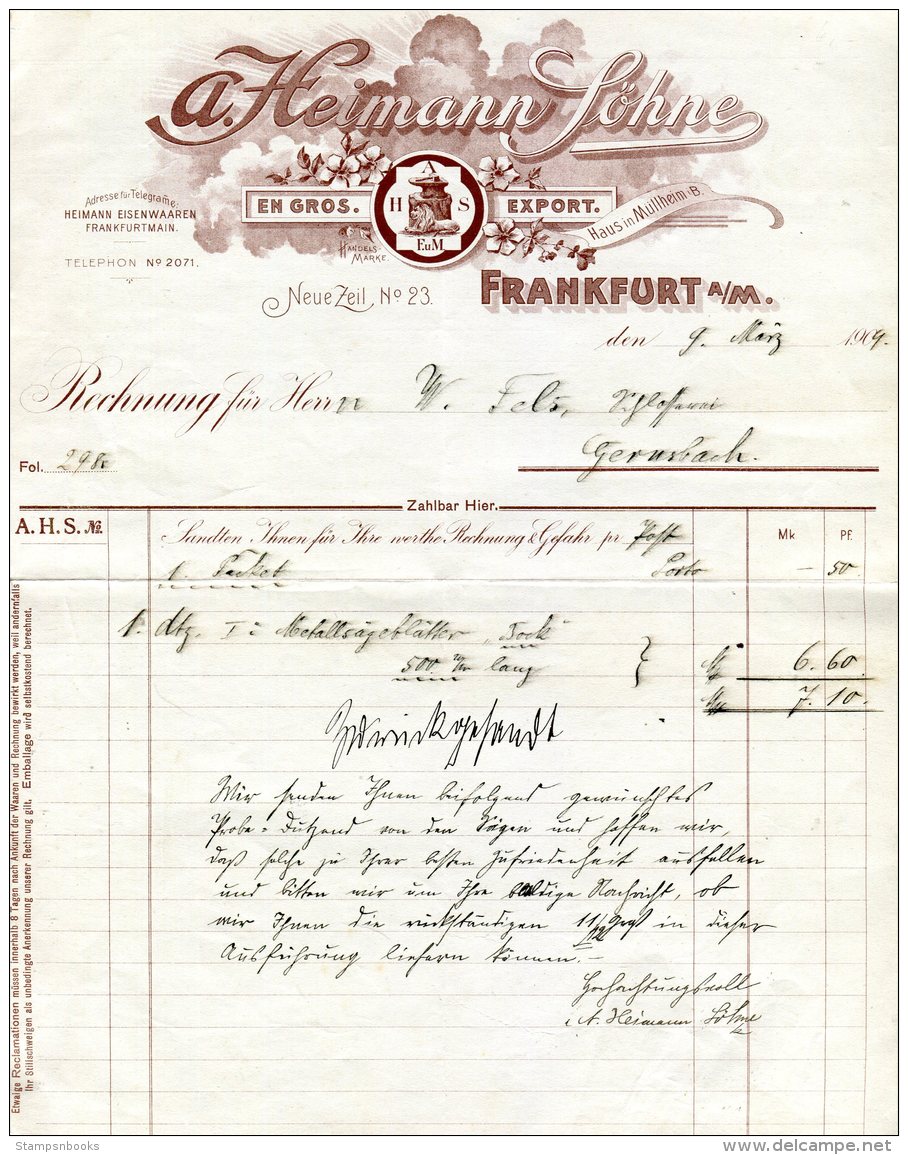 A. Heimann Söhne
Adresse für Telegrame:
HEIMANN EISENWAAREN
FRANKFURTMAIN.
TELEPHON No 2071.
EN GROS.
A
H S
F.u.M.
HANDELS-
MARKE.
EXPORT.
Haus in Müllheim i. B.
Neue Zeil, No 23.
FRANKFURT A/M.
den 9. März 1909.
Rechnung für Herrn W. Fels, Schlosserei
Gernsbach.
Fol. 298
Zahlbar Hier.
A.H.S. No.
Sandten Ihnen für Ihre werthe Rechnung & Gefahr pr Post
Mk Pf.
1. Packet Porto — 50
1. dtz. Ia Metallsägeblätter "Bock"
500 m/m lang
6. 60
7. 10.
Zurückgesandt
Wir senden Ihnen beifolgend gewünschtes
Probe = Dutzend von den Sägen und hoffen wir,
daß solche zu Ihrer besten Zufriedenheit ausfallen
und bitten wir um Ihre baldige Nachricht, ob
wir Ihnen die rückständigen 11/12 Gros in dieser
Ausführung liefern können. —
Hochachtungsvoll
A. Heimann Söhne
Etwaige Reclamationen müssen innerhalb 8 Tagen nach Ankunft der Waaren und Rechnung bewirkt werden, weil andernfalls
Ihr Stillschweigen als unbedingte Anerkennung unserer Rechnung gilt. Emballage wird selbstkostend berechnet.
Stampsnbooks
www.delcampe.net